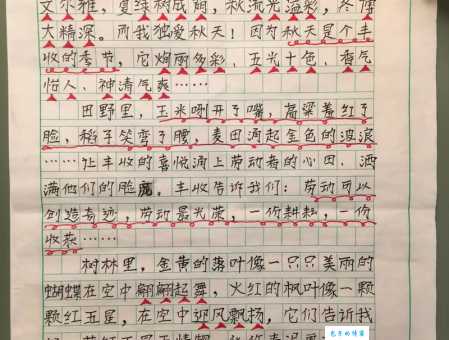 文尔雅，夏绿树成荫，秋流光溢彩，冬博
大精深。而我独爱秋天！因为秋天是个丰
收的季节，它绚丽多彩、五光十色、香气
怡人、神清气爽……
田野里，玉米咧开了嘴，高粱羞红了
脸，稻子笑弯了腰，麦田涌起金色的波浪
……让丰收的喜悦涌上劳动者的心田，洒
满他们的脸庞。丰收告诉我们：劳动可以
创造奇迹，劳动最光荣，一份耕耘，一份
收获……
树林里，金黄的落叶像一只只美丽的
蝴蝶在空中翩翩起舞，火红的枫叶像一颗
颗红五星，在空中迎风飘扬，它们告诉我